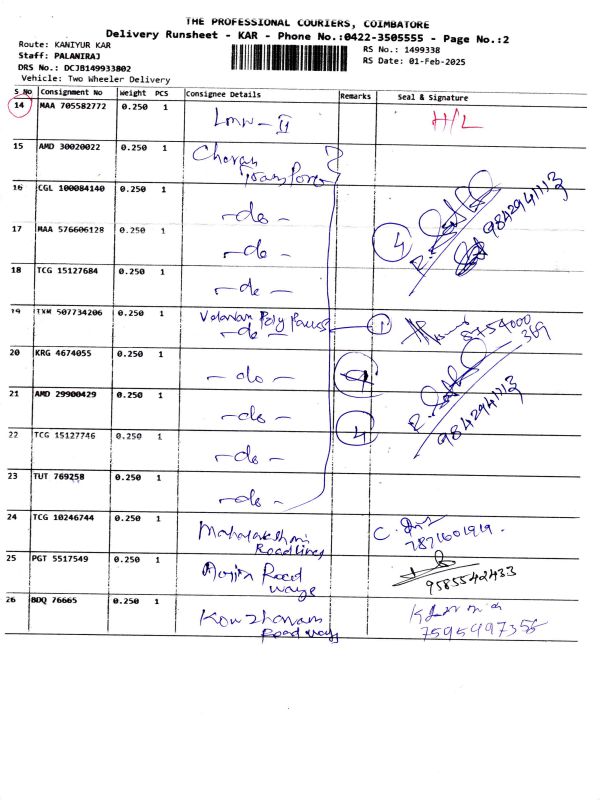 THE PROFESSIONAL COURIERS, COIMBATORE
Delivery Runsheet - KAR - Phone No.:0422-3505555 - Page No.:2
Route: KANIYUR KAR
RS No.: 1499338
Staff: PALANIRAJ
RS Date: 01-Feb-2025
DRS No.: DCJB149933802
Vehicle: Two Wheeler Delivery
S No Consignment No Weight PCS Consignee Details Remarks Seal & Signature
14 MAA 705582772 0.250 1 H/L
15 AMD 30020022 0.250 1
16 CGL 100084140 0.250 1 -do-
9842941113
17 MAA 576606128 0.250 1 -do- 4
18 TCG 15127684 0.250 1 -do-
19 TXM 507734206 0.250 1 1
-do- 8754000
369
20 KRG 4674055 0.250 1 -do-
21 AMD 29900429 0.250 1 -do- 4
9842941113
22 TCG 15127746 0.250 1 -do-
23 TUT 769258 0.250 1 -do-
24 TCG 10246744 0.250 1 Mahalakshmi
Roadlines
7871601919.
25 PGT 5517549 0.250 1 Road
ways
9585542433
26 BDQ 76665 0.250 1
Roadways